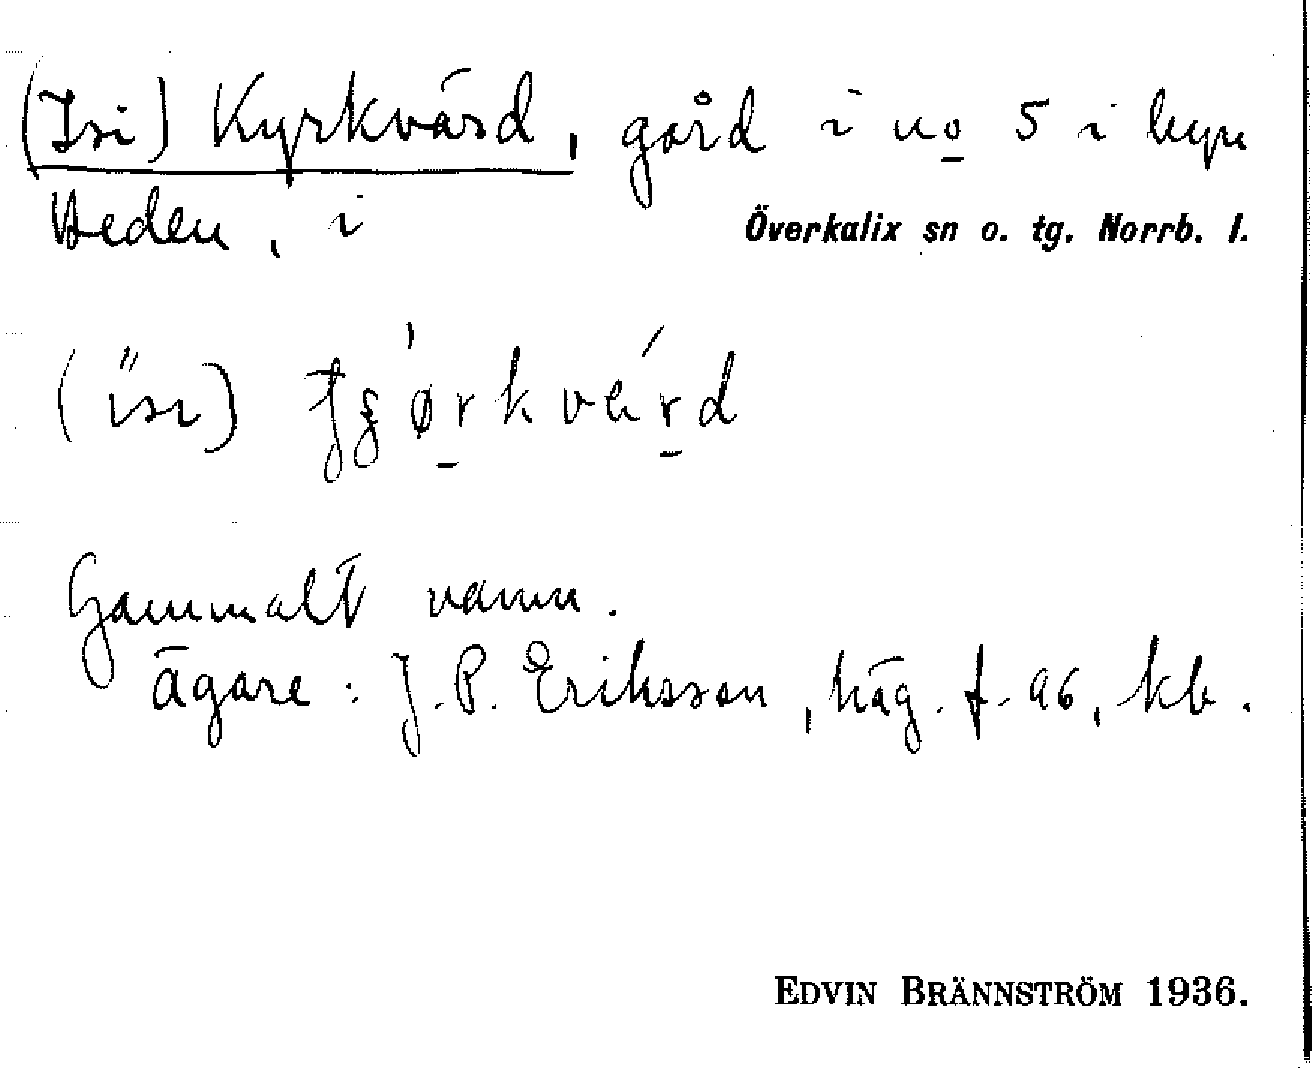 (Isi) Kyrkvärd, gård i no 5 i byn
Heden, i Överkalix sn o. tg. Norrb. l.
Gammalt namn.
ägare: J. P. Eriksson, häg. f. 96, kb.
EDVIN BRÄNNSTRÖM 1936.